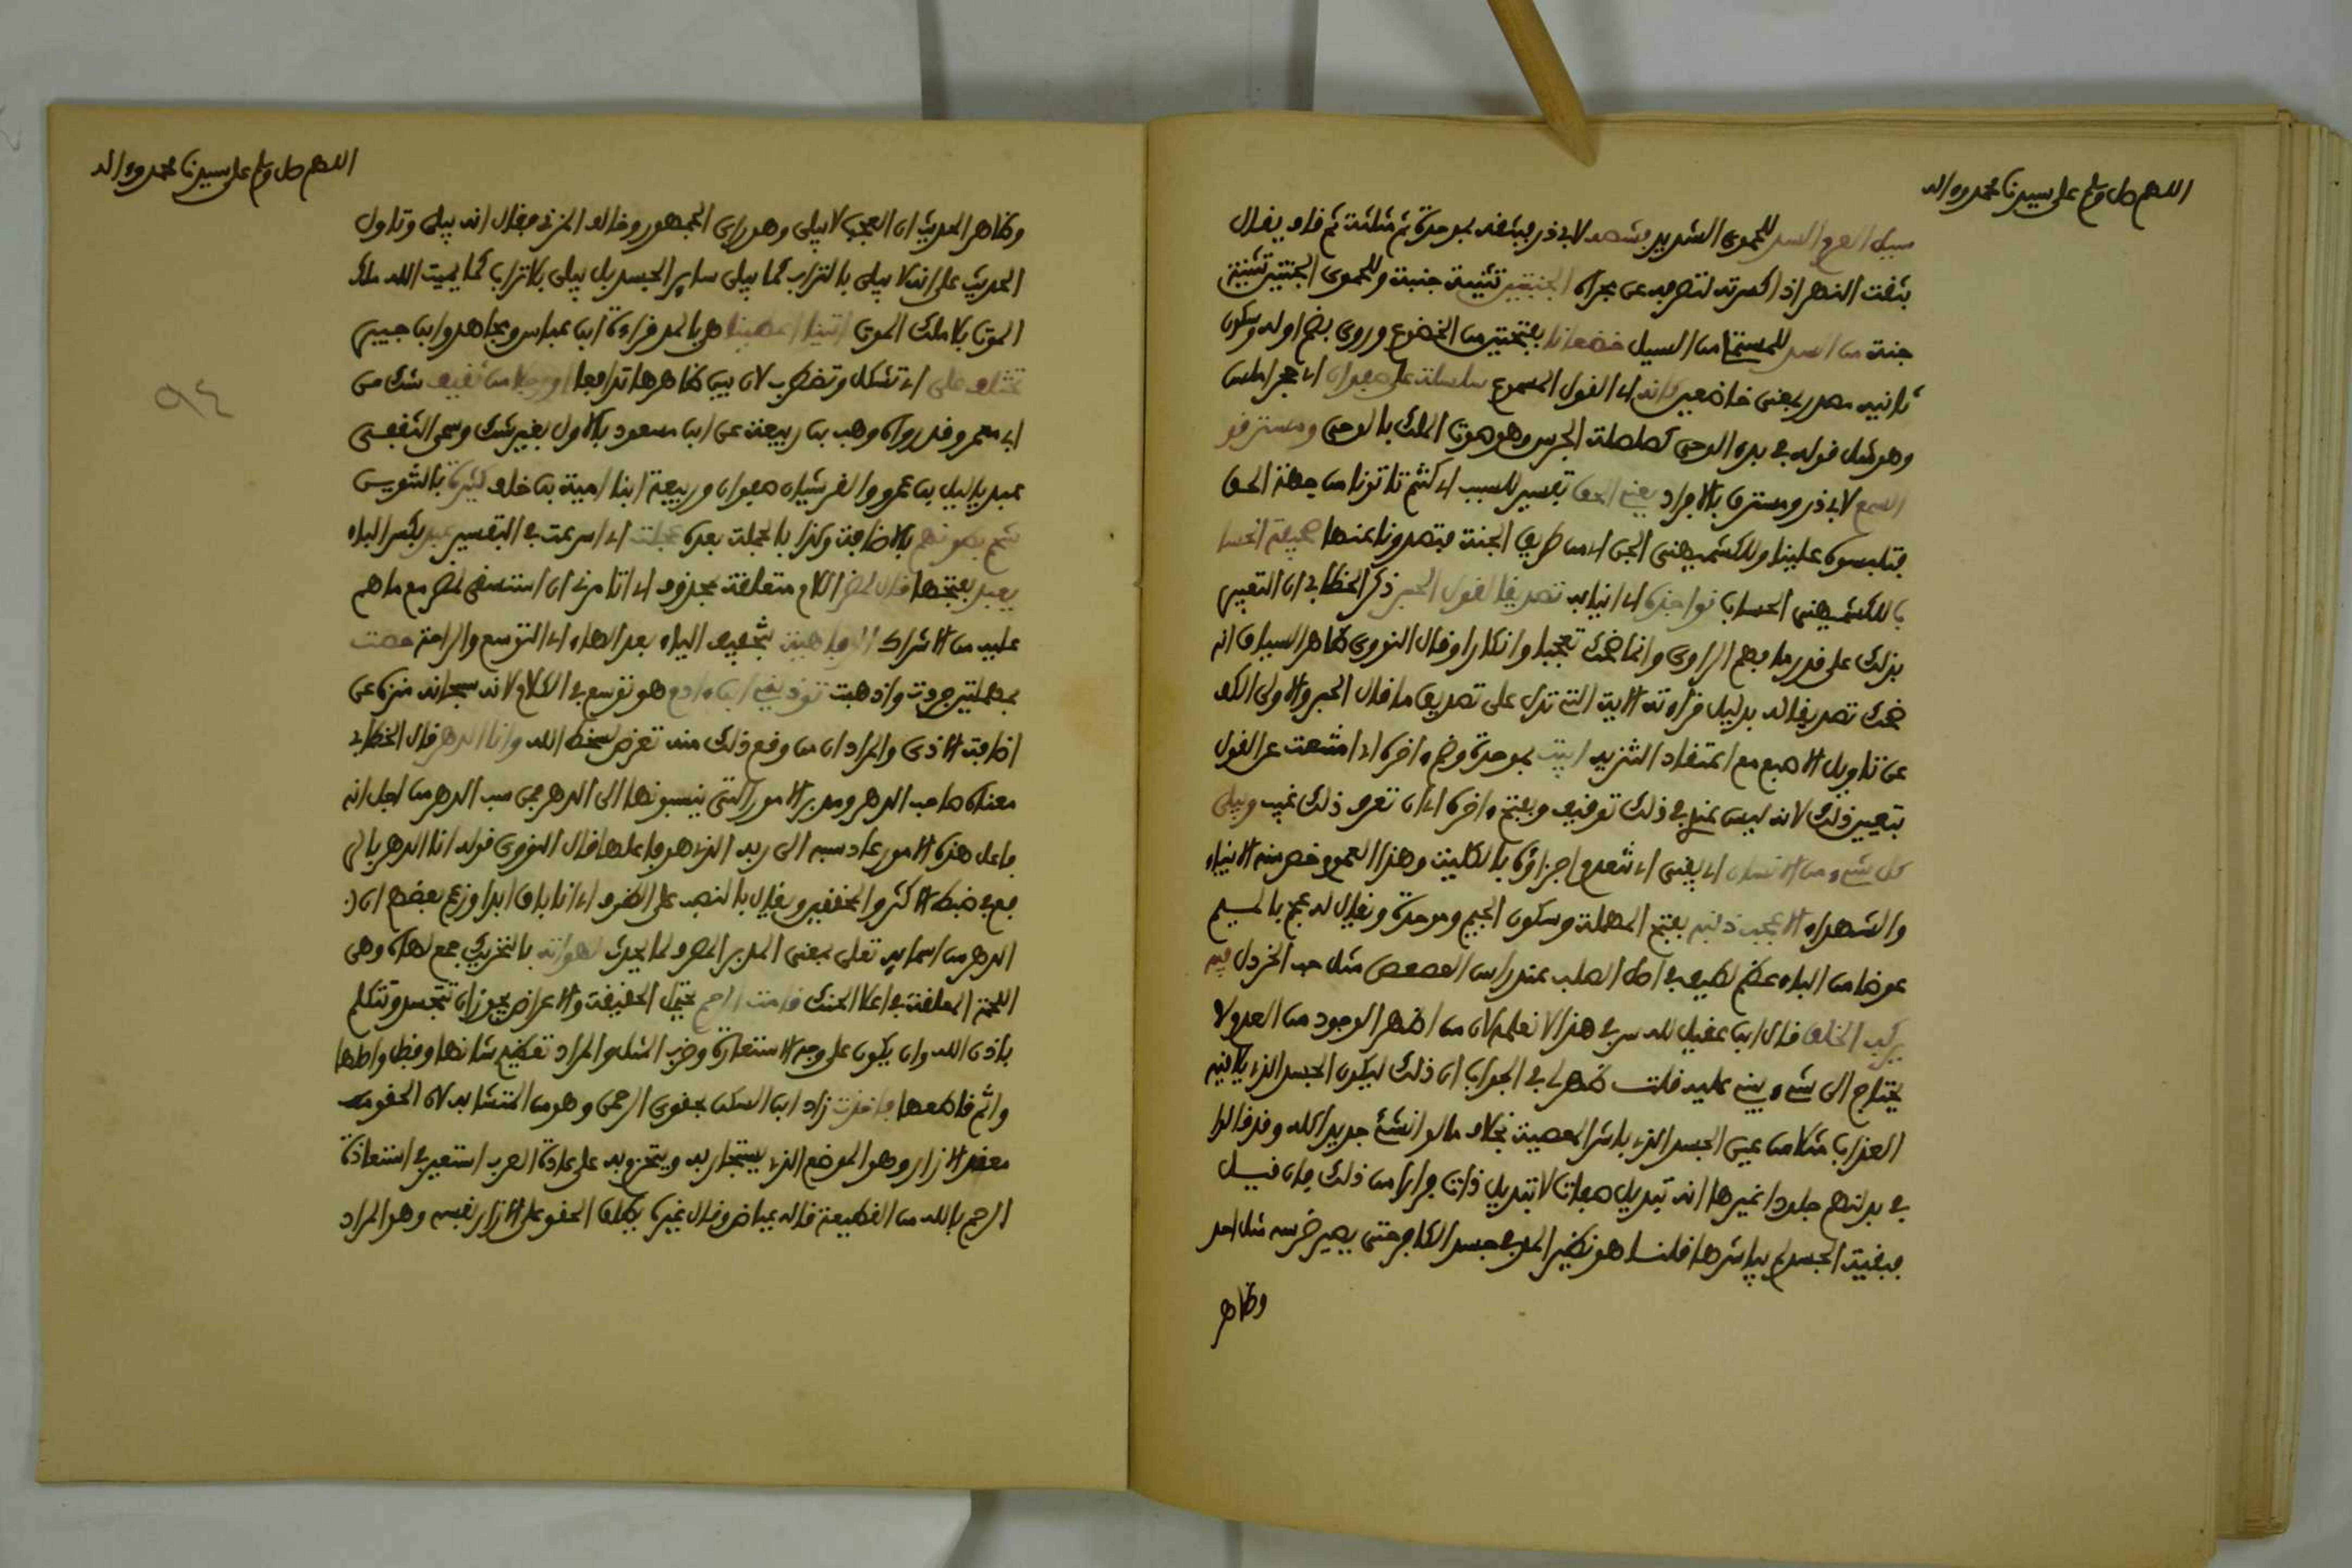 اللهم صل وسلم على سيدنا محمد وءاله
سيل العرم السد للحموى الشديد فشقه لابى ذر فبثقه بموحدة ثم مثلثة ثم قاف يقال
بثقت النهر اذا كسرته لتصرفه عن مجراه الجنتين تثنية جنة وللحموى الجنبتين تثنية
جنبة من السد للمستملى من السيل خضعانا بفتحتين من الخضوع وروى بضم اوله وسكون
ثانيه مصدر بمعنى خاضعين كانه اى القول المسموع سلسلة على صفوان اى حجر املس
وهو مثل قوله فى بدء الوحى كصلصلة الجرس وهو صوت الملك بالوحى ومسترقو
السمع لابى ذر ومسترق بالافراد يعنى الحق تفسير للسبب اى كنتم تاتوننا من جهة الحق
فتلبسون علينا وللكشميهنى الجن اى من طريق الجنة فتصدوننا عنها
بالكشميهنى نواجذه اى انيابه تصديقا لقول الحبر ذكر الخطابى ان التعبير
بذلك على قدر ما فهم الراوى وانما ضحك تعجبا وانكارا وقال النووى ظاهر السياق انه
ضحك تصديقا له بدليل قراءته الاية التى تدل على تصديق ما قال الحبر والاولى الكف
عن تاويل الاصبع مع اعتقاد التنزيه ابيت بموحدة وضم ءاخره اى امتنعت عن القول
بتعيين ذلك لانه ليس عندى فى ذلك توقيف وبفتح ءاخره اى ان تعرف ذلك غيب ويبلى
كل شىء من الانسان اى يفنى اى تنعدم اجزاؤه بالكلية وهذا العموم خص منه الانبياء
والشهداء الا عجب ذنبه بفتح المهملة وسكون الجيم وموحدة ويقال له عجم بالميم
عوضا من الباء عظم لطيف فى اصل الصلب عند راس العصعص مثل حب الخردل فيه
يركب الخلق قال ابن عقيل لله سر فى هذا لا نعلمه لان من اظهر الوجود من العدم لا
يحتاج الى شىء يبنى عليه قلت ظهر لى فى الجواب ان ذلك ليكون الجسد الذى يلاقيه
العذاب مثلا من عين الجسد الذى باشر المعصية بخلاف ما لو انشئ جديدا كله وقد قالوا
فى بدلناهم جلودا غيرها انه تبديل صفات لا تبديل ذات فرارا من ذلك فان قيل
فبقية الجسد لم يباشرها قلنا هو نظير المد فى جسد الكافر حتى يصير ضرسه مثل احد
وظاهر
اللهم صل وسلم على سيدنا محمد وءاله
٩٤
وظاهر الحديث ان العجب لا يبلى وهو راى الجمهور وخالف المزنى فقال انه يبلى وتاول
الحديث على انه لا يبلى بالتراب كما يبلى ساير الجسد بل يبلى بلا تراب كما يميت الله ملك
الموت بلا ملك الموت اتينا اعطينا هو بالمد قراءة ابن عباس ومجاهد وابن جبير
تختلف على اى تشكل وتضطرب لان بين ظاهرها تدافعا او رجلا من ثقيف شك من
ابى معمر وقد رواه وهب بن ربيعة عن ابن مسعود بالاول بغير شك وسمى الثقفى
عبد ياليل بن عمرو والقرشيان صفوان وربيعة ابنا امية بن خلف كثيرة بالتنوين
شحم بطونهم بالاضافة وكذا بالجملة بعده عجلت اى اسرعت فى التفسير عبد بكسر الباء
يعبد بفتحها قال لمضر اللام متعلقة بمحذوف اى اتامرنى ان استسقى لمضر مع ما هم
عليه من الاشراك الرفاهية بتخفيف الياء بعد الهاء اى التوسع والراحة حصت
بمهملتين جردت واذهبت يوذينى ابن ءادم هو توسع فى الكلام لانه سبحانه منزه عن
اضافة الاذى والمراد ان من وقع ذلك منه تعرض لسخط الله وانا الدهر قال الخطابى
معناه صاحب الدهر ومدبر الامور التى ينسبونها الى الدهر فمن سب الدهر من اجل انه
فاعل هذه الامور عاد سبه الى ربه الذى هو فاعلها قال النووى قوله انا الدهر بالر
فع فى ضبط الاكثر والمحققين ويقال بالنصب على الظرف اى انا باق ابدا وزعم بعضهم ان
الدهر من اسمايه تعالى بمعنى المدبر المصرف لما يحدث لهواته بالتحريك جمع لهاة وهى
اللحمة المعلقة فى اعلا الحنك قامت الرحم يحتمل الحقيقة والاعراض يجوز ان تتجسد وتتكلم
باذن الله وان يكون على وجه الاستعارة وضرب المثل والمراد تعظيم شانها وفضل واصلها
واثم قاطعها فاخذت زاد ابن السكن بحقوى الرحمن وهو من المتشابه لان الحقو
معقد الازار وهو الموضع الذى يستجار به ويحتزم به على عادة العرب استعير فى استعاذة
الرحم بالله من القطيعة قاله عياض وقال غيره يطلق الحقو على الازار نفسه وهو المراد